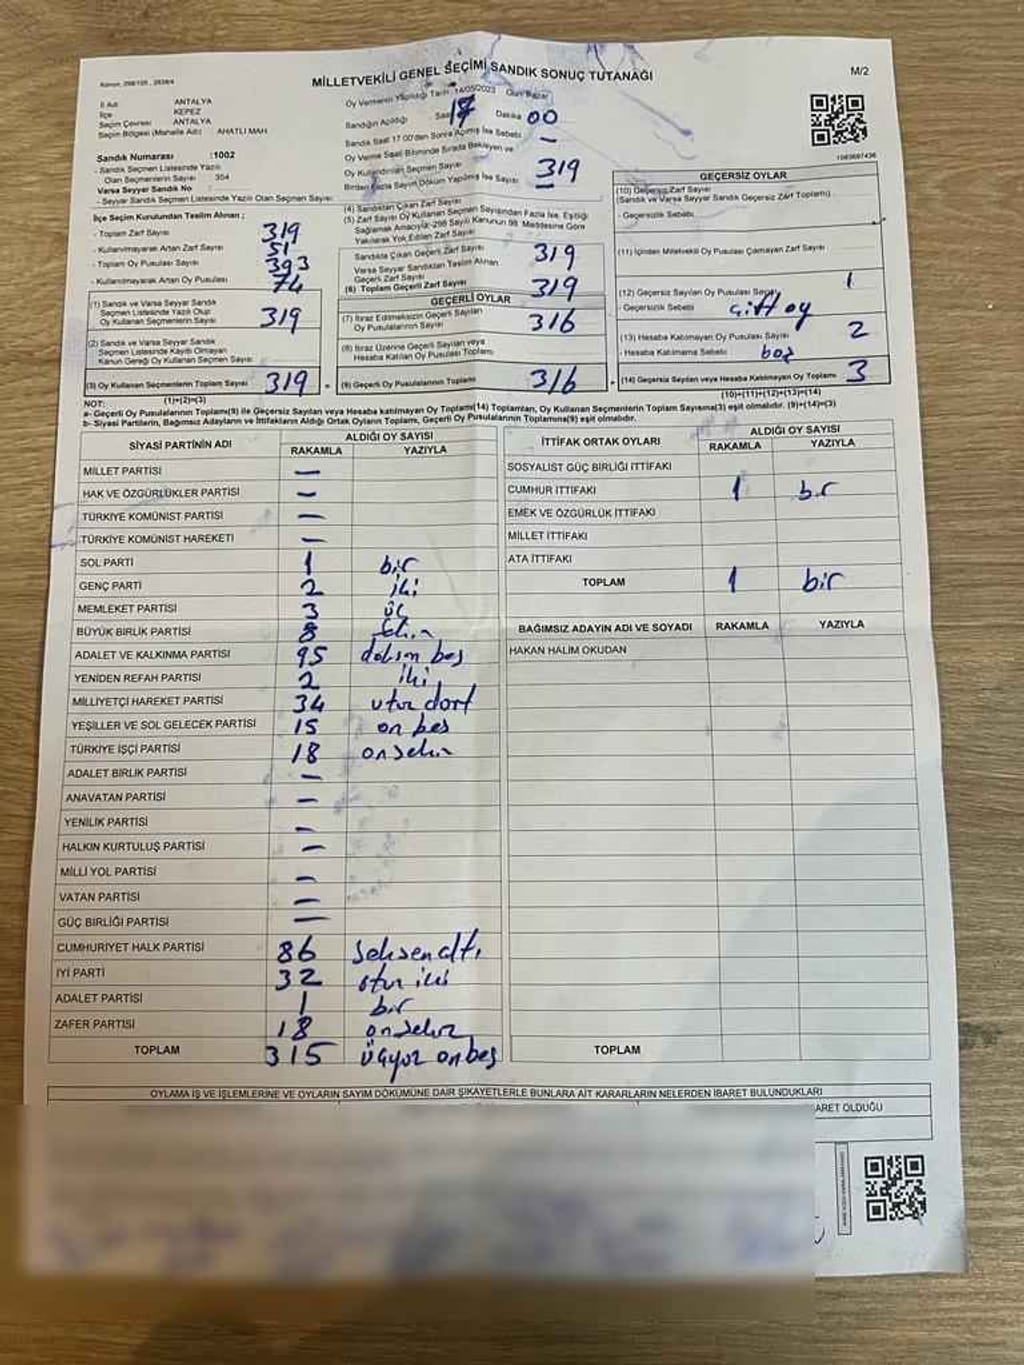 MİLLETVEKİLİ GENEL SEÇİMİ SANDIK SONUÇ TUTANAĞI
M/2
İl Adı ANTALYA
İlçe KEPEZ
Seçim Çevresi ANTALYA
Seçim Bölgesi (Mahalle Adı) AHATLI MAH
Sandık Numarası :1002
- Sandık Seçmen Listesinde Yazılı
Olan Seçmenlerin Sayısı 354
Varsa Seyyar Sandık No
- Seyyar Sandık Seçmen Listesinde Yazılı Olan Seçmen Sayısı
Oy Vermenin Yapıldığı Tarih 14/05/2023 Gün Pazar
Sandığın Açıldığı Saat 17 Dakika 00
Sandık Saat 17.00'den Sonra Açılmış İse Sebebi –
Oy Verme Saati Bitiminde Sırada Bekleyen ve
Oy Kullandırılan Seçmen Sayısı
Birden Fazla Sayım Döküm Yapılmış İse Sayısı
319
İlçe Seçim Kurulundan Teslim Alınan ;
- Toplam Zarf Sayısı 319
- Kullanılmayarak Artan Zarf Sayısı 51
- Toplam Oy Pusulası Sayısı 393
- Kullanılmayarak Artan Oy Pusulası 74
(1) Sandık ve Varsa Seyyar Sandık
Seçmen Listesinde Yazılı Olup
Oy Kullanan Seçmenlerin Sayısı 319
(2) Sandık ve Varsa Seyyar Sandık
Seçmen Listesinde Kayıtlı Olmayan
Kanun Gereği Oy Kullanan Seçmen Sayısı
(3) Oy Kullanan Seçmenlerin Toplam Sayısı 319
(1)+(2)=(3)
(4) Sandıktan Çıkan Zarf Sayısı
(5) Zarf Sayısı Oy Kullanan Seçmen Sayısından Fazla İse, Eşitliği
Sağlamak Amacıyla 298 Sayılı Kanunun 98. Maddesine Göre
Yakılarak Yok Edilen Zarf Sayısı
Sandıkta Çıkan Geçerli Zarf Sayısı 319
Varsa Seyyar Sandıktan Teslim Alınan
Geçerli Zarf Sayısı
(6) Toplam Geçerli Zarf Sayısı 319
GEÇERLİ OYLAR
(7) İtiraz Edilmeksizin Geçerli Sayılan
Oy Pusulasının Sayısı 316
(8) İtiraz Üzerine Geçerli Sayılan veya
Hesaba Katılan Oy Pusulası Toplamı
(9) Geçerli Oy Pusulalarının Toplamı 316
GEÇERSİZ OYLAR
(10) Geçersiz Zarf Sayısı
(Sandık ve Varsa Seyyar Sandık Geçersiz Zarf Toplamı)
- Geçersizlik Sebebi
(11) İçinden Milletvekili Oy Pusulası Çıkmayan Zarf Sayısı
(12) Geçersiz Sayılan Oy Pusulası Sayısı 1
- Geçersizlik Sebebi çift oy
(13) Hesaba Katılmayan Oy Pusulası Sayısı 2
- Hesaba Katılmama Sebebi boş
(14) Geçersiz Sayılan veya Hesaba Katılmayan Oy Toplamı 3
(10)+(11)+(12)+(13)=(14)
NOT:
a- Geçerli Oy Pusulalarının Toplamı(9) ile Geçersiz Sayılan veya Hesaba katılmayan Oy Toplamı(14) Toplamları, Oy Kullanan Seçmenlerin Toplam Sayısına(3) eşit olmalıdır. (9)+(14)=(3)
b- Siyasi Partilerin, Bağımsız Adayların ve İttifakların Aldığı Oy Toplamı, Geçerli Oy Pusulalarının Toplamına(9) eşit olmalıdır.
SİYASİ PARTİNİN ADI ALDIĞI OY SAYISI
RAKAMLA YAZIYLA
MİLLET PARTİSİ –
HAK VE ÖZGÜRLÜKLER PARTİSİ –
TÜRKİYE KOMÜNİST PARTİSİ –
TÜRKİYE KOMÜNİST HAREKETİ –
SOL PARTİ 1 bir
GENÇ PARTİ 2 iki
MEMLEKET PARTİSİ 3 üç
BÜYÜK BİRLİK PARTİSİ 8
ADALET VE KALKINMA PARTİSİ 95 doksan beş
YENİDEN REFAH PARTİSİ 2 iki
MİLLİYETÇİ HAREKET PARTİSİ 34 otuz dört
YEŞİLLER VE SOL GELECEK PARTİSİ 15 on beş
TÜRKİYE İŞÇİ PARTİSİ 18 on sekiz
ADALET BİRLİK PARTİSİ –
ANAVATAN PARTİSİ –
YENİLİK PARTİSİ –
HALKIN KURTULUŞ PARTİSİ –
MİLLİ YOL PARTİSİ –
VATAN PARTİSİ –
GÜÇ BİRLİĞİ PARTİSİ –
CUMHURİYET HALK PARTİSİ 86 seksen altı
İYİ PARTİ 32 otuz iki
ADALET PARTİSİ 1 bir
ZAFER PARTİSİ 18 on sekiz
TOPLAM 315 üçyüz on beş
İTTİFAK ORTAK OYLARI ALDIĞI OY SAYISI
RAKAMLA YAZIYLA
SOSYALİST GÜÇ BİRLİĞİ İTTİFAKI
CUMHUR İTTİFAKI 1 bir
EMEK VE ÖZGÜRLÜK İTTİFAKI
MİLLET İTTİFAKI
ATA İTTİFAKI
TOPLAM 1 bir
BAĞIMSIZ ADAYIN ADI VE SOYADI RAKAMLA YAZIYLA
HAKAN HALİM OKUDAN
TOPLAM
OYLAMA İŞ VE İŞLEMLERİNE VE OYLARIN SAYIM DÖKÜMÜNE DAİR ŞİKAYETLERLE BUNLARA AİT KARARLARIN NELERDEN İBARET BULUNDUKLARI
ARET OLDUĞU